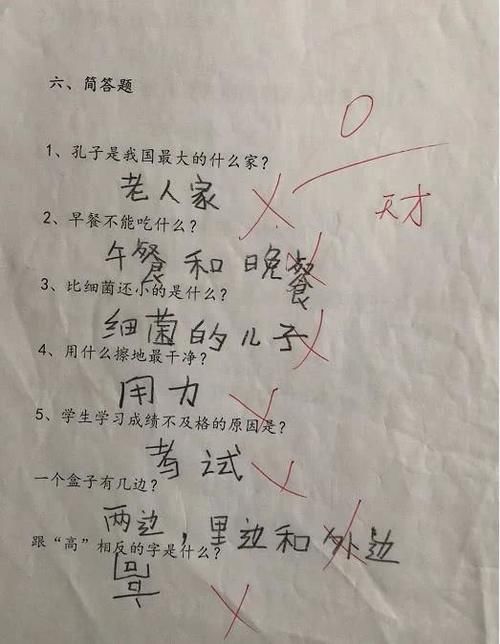 六、简答题
0
天才
1、孔子是我国最大的什么家?
老人家
2、早餐不能吃什么?
午餐和晚餐
3、比细菌还小的是什么?
细菌的儿子
4、用什么擦地最干净?
用力
5、学生学习成绩不及格的原因是?
考试
一个盒子有几边?
两边,里边和外边
跟“高”相反的字是什么?